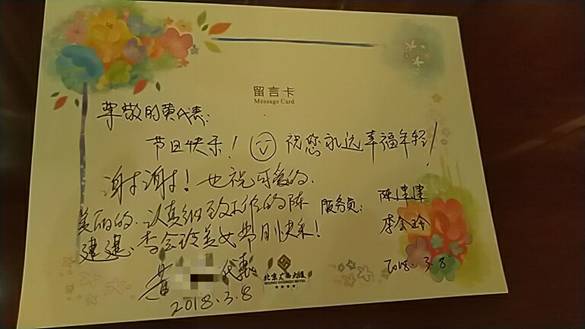 留言卡
Message Card
尊敬的黄代表：
节日快乐！祝您永远幸福年轻！
服务员：陈建建
李会玲
2018.3.8
谢谢！也祝可爱的、
美丽的、认真细致工作的陈
建建、李会玲美女节日快乐！
黄 代表
2018.3.8
北京广西大厦